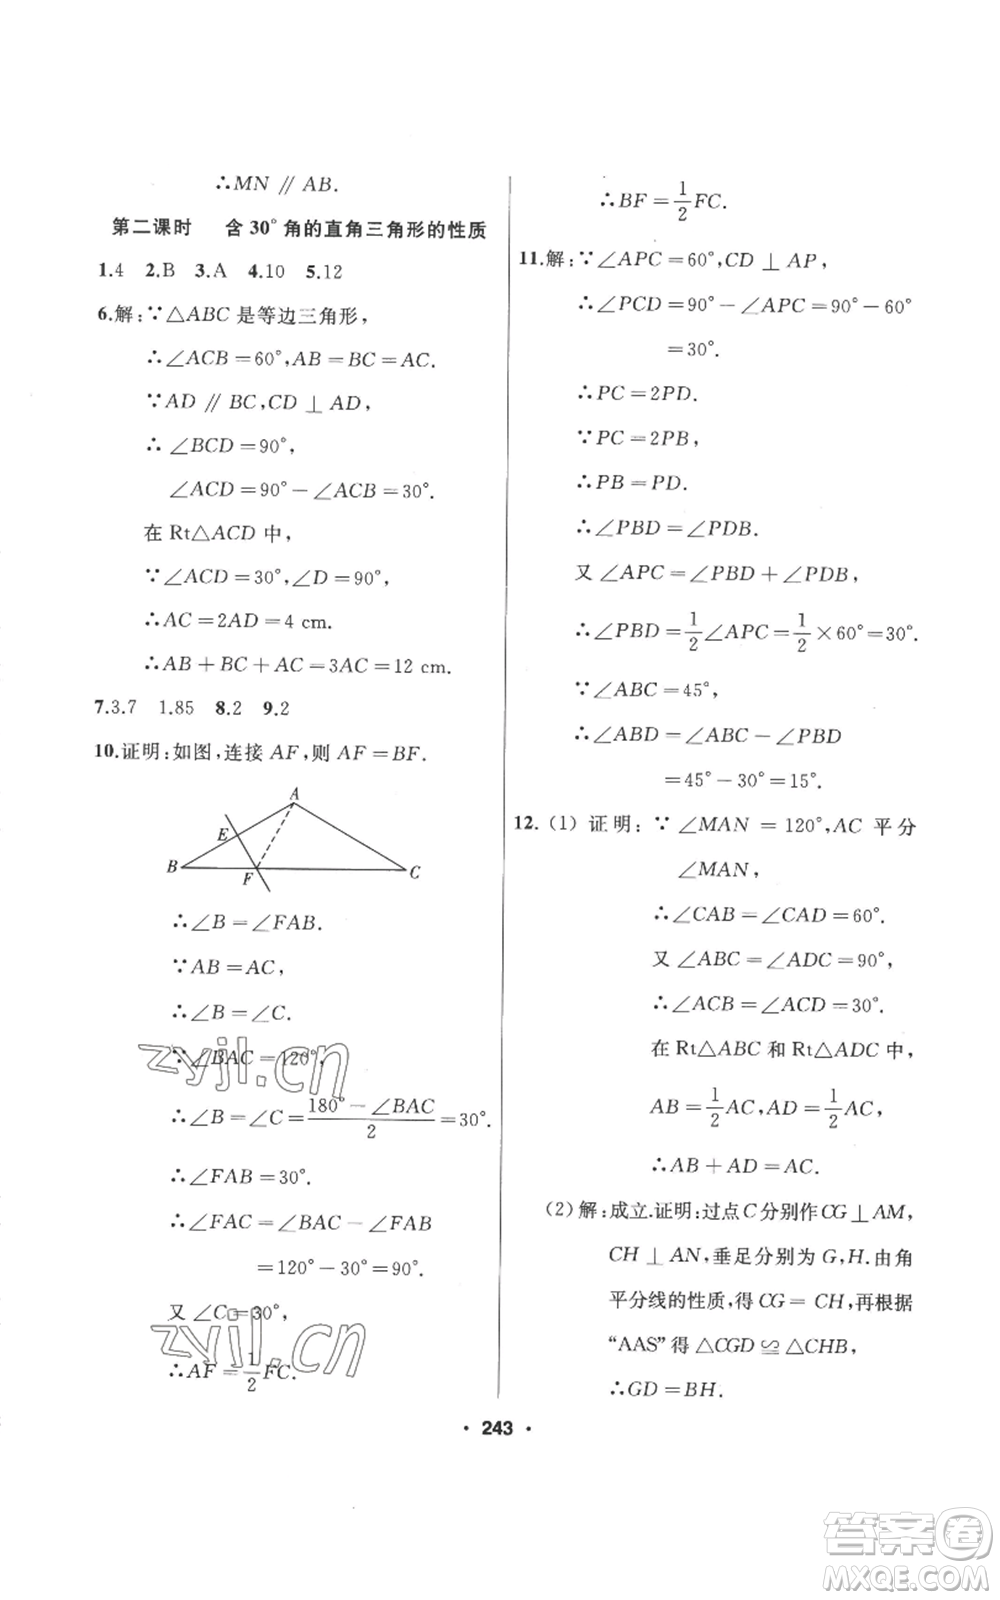 ∴MN // AB.
第二课时 含30°角的直角三角形的性质
1.4 2.B 3.A 4.10 5.12
6.解:∵△ABC 是等边三角形,
∴∠ACB=60°,AB=BC=AC.
∵AD // BC,CD⊥AD,
∴∠BCD=90°,
∠ACD=90°-∠ACB=30°.
在 Rt△ACD 中,
∵∠ACD=30°,∠D=90°,
∴AC=2AD=4 cm.
∴AB+BC+AC=3AC=12 cm.
7.3.7 1.85 8.2 9.2
10.证明:如图,连接 AF,则 AF=BF.
A
E
B
F
C
∴∠B=∠FAB.
∵AB=AC,
∴∠B=∠C.
∵∠BAC=120°,
∴∠B=∠C=\frac{180°-∠BAC}{2}=30°.
∴∠FAB=30°.
∴∠FAC=∠BAC-∠FAB
=120°-30°=90°.
又∠C=30°,
∴AF=\frac{1}{2}FC.
∴BF=\frac{1}{2}FC.
11.解:∵∠APC=60°,CD⊥AP,
∴∠PCD=90°-∠APC=90°-60°
=30°.
∴PC=2PD.
∵PC=2PB,
∴PB=PD.
∴∠PBD=∠PDB.
又∠APC=∠PBD+∠PDB,
∴∠PBD=\frac{1}{2}∠APC=\frac{1}{2}×60°=30°.
∵∠ABC=45°,
∴∠ABD=∠ABC-∠PBD
=45°-30°=15°.
12.(1)证明:∵∠MAN=120°,AC 平分
∠MAN,
∴∠CAB=∠CAD=60°.
又∠ABC=∠ADC=90°,
∴∠ACB=∠ACD=30°.
在 Rt△ABC 和 Rt△ADC 中,
AB=\frac{1}{2}AC,AD=\frac{1}{2}AC,
∴AB+AD=AC.
(2)解:成立.证明:过点C分别作CG⊥AM,
CH⊥AN,垂足分别为G,H.由角
平分线的性质,得CG=CH,再根据
“AAS”得△CGD≌△CHB,
∴GD=BH.
· 243 ·
zyjl.cn
zyjl.cn
答案卷
MXQE.COM